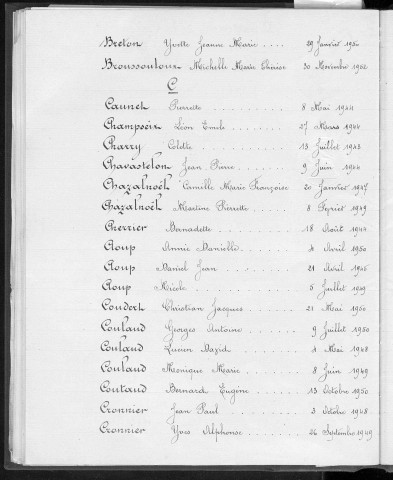 Breton Yvette Jeanne Marie .... 29 Janvier 1950
Broussouloux Michelle Marie Thérèse 30 Novembre 1942
C
Caunet Pierrette ........ 8 Mai 1944
Champseix Léon Emile ...... 27 Mars 1944
Charry Colette ........ 13 Juillet 1942
Chavastelon Jean Pierre ...... 9 Juin 1944
Chazalnoël Camille Marie Françoise 20 Janvier 1947
Chazalnoël Martine Pierrette .... 8 Février 1949
Cherrier Bernadette ....... 18 Août 1944
Cloup Annie Danielle .... 4 Avril 1950
Cloup Daniel Jean ....... 21 Avril 1946
Cloup Nicole ......... 5 Juillet 1949
Coudert Christian Jacques ..... 21 Mai 1950
Coulaud Georges Antoine ..... 9 Juillet 1950
Coulaud Lucien David ..... 1 Mai 1948
Coulaud Monique Marie .... 8 Juin 1949
Coutaud Bernard Eugène .... 13 Octobre 1950
Cronnier Jean Paul ....... 3 Octobre 1948
Cronnier Yves Alphonse ...... 26 Septembre 1949